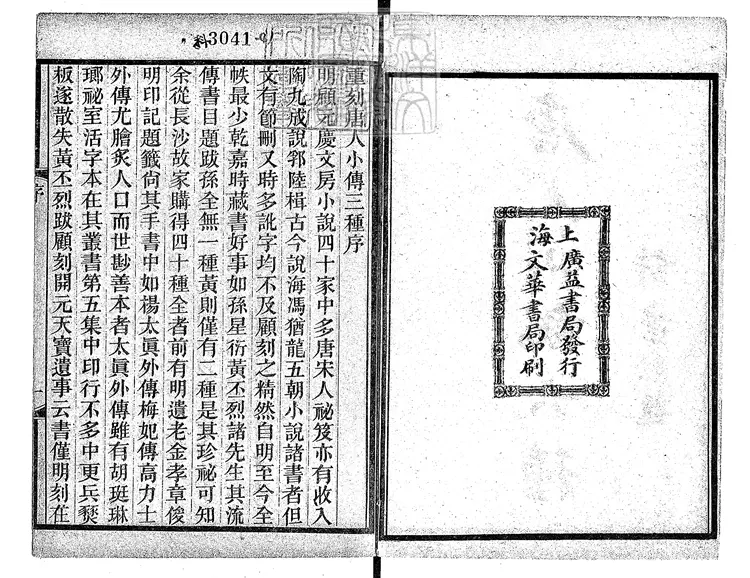 上海
廣益書局發行
文華書局印刷
科3041
重刻唐人小傳三種序
明顧元慶文房小說四十家中多唐宋人祕笈亦有收入
陶九成說郛陸楫古今說海馮猶龍五朝小說諸書者但
文有節刪又時多訛字均不及顧刻之精然自明至今全
帙最少乾嘉時藏書好事如孫星衍黃丕烈諸先生其流
傳書目題跋孫全無一種黃則僅有二種是其珍祕可知
余從長沙故家購得四十種全者前有明遺老金孝章俊
明印記題籤尙其手書中如楊太眞外傳梅妃傳高力士
外傳尤膾炙人口而世尟善本者太眞外傳雖有胡珽琳
瑯祕室活字本在其叢書第五集中印行不多中更兵燹
板遂散失黃丕烈跋顧刻開元天寶遺事云書僅明刻在
序
一